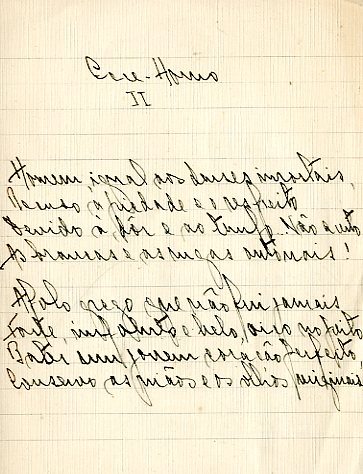 Ecce-Homo
II
Homem, igual aos deuses imortais,
Recuso a piedade e o respeito
Devido à dôr e ao tempo. Não aceito
As brancas e as rugas outonais!
Apolo grego que não fui jamais
Forte, infante e belo, ouço no peito
Bater um jovem coração perfeito,
Conservo as mãos e os olhos originais